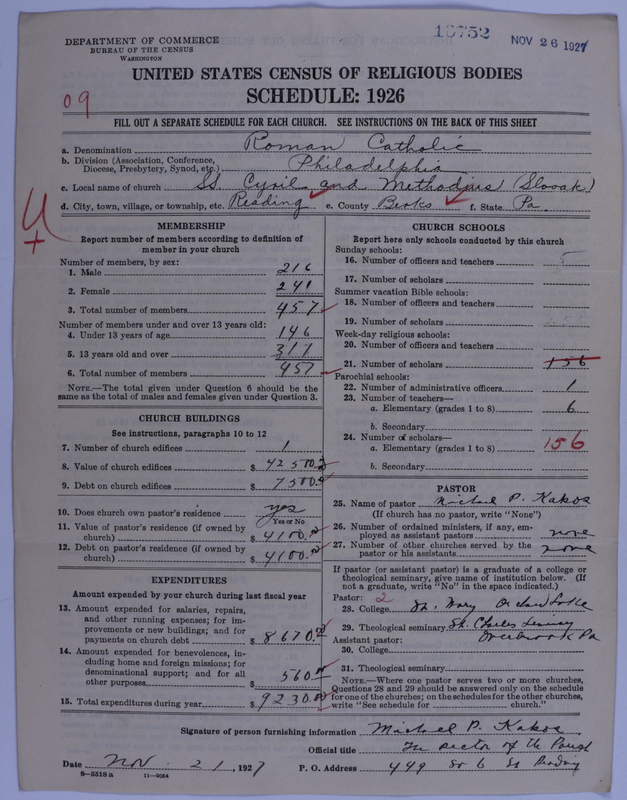 13752
NOV 26 1927
DEPARTMENT OF COMMERCE
BUREAU OF THE CENSUS
WASHINGTON
UNITED STATES CENSUS OF RELIGIOUS BODIES
SCHEDULE: 1926
09
FILL OUT A SEPARATE SCHEDULE FOR EACH CHURCH. SEE INSTRUCTIONS ON THE BACK OF THIS SHEET
a. Denomination Roman Catholic
b. Division (Association, Conference, Diocese, Presbytery, Synod, etc.) Philadelphia
c. Local name of church SS. Cyril and Methodius (Slovak)
d. City, town, village, or township, etc. Reading e. County Berks f. State Pa.
MEMBERSHIP
Report number of members according to definition of
member in your church
Number of members, by sex:
1. Male 216
2. Female 241
3. Total number of members 457
Number of members under and over 13 years old:
4. Under 13 years of age 146
5. 13 years old and over 311
6. Total number of members 457
NOTE.—The total given under Question 6 should be the
same as the total of males and females given under Question 3.
CHURCH BUILDINGS
See instructions, paragraphs 10 to 12
7. Number of church edifices 1
8. Value of church edifices $ 42500
9. Debt on church edifices $ 7500
10. Does church own pastor's residence yes
Yes or No
11. Value of pastor's residence (if owned by
church) $ 4100
12. Debt on pastor's residence (if owned by
church) $ 4100
EXPENDITURES
Amount expended by your church during last fiscal year
13. Amount expended for salaries, repairs,
and other running expenses; for im-
provements or new buildings; and for
payments on church debt $ 8670
14. Amount expended for benevolences, in-
cluding home and foreign missions; for
denominational support; and for all
other purposes $ 560
15. Total expenditures during year $ 9230
CHURCH SCHOOLS
Report here only schools conducted by this church
Sunday schools:
16. Number of officers and teachers 5
17. Number of scholars
Summer vacation Bible schools:
18. Number of officers and teachers
19. Number of scholars
Week-day religious schools:
20. Number of officers and teachers
21. Number of scholars 156
Parochial schools:
22. Number of administrative officers 1
23. Number of teachers—
a. Elementary (grades 1 to 8) 6
b. Secondary
24. Number of scholars—
a. Elementary (grades 1 to 8) 156
b. Secondary
PASTOR
25. Name of pastor Michael P. Kakos
(If church has no pastor, write "None")
26. Number of ordained ministers, if any, em-
ployed as assistant pastors none
27. Number of other churches served by the
pastor or his assistants none
If pastor (or assistant pastor) is a graduate of a college or
theological seminary, give name of institution below. (If
not a graduate, write "No" in the space indicated.)
Pastor: 2
28. College St. Mary Orchard Lake
29. Theological seminary St. Charles Seminary
Assistant pastor: Overbrook Pa
30. College
31. Theological seminary
NOTE.—Where one pastor serves two or more churches,
Questions 28 and 29 should be answered only on the schedule
for one of the churches; on the schedules for the other churches,
write "See schedule for church.
Signature of person furnishing information Michael P. Kakos
Official title The rector of the Parish
Date Nov. 21, 1927 P. O. Address 449 So 6 St Reading
8—5518 a 11—9034